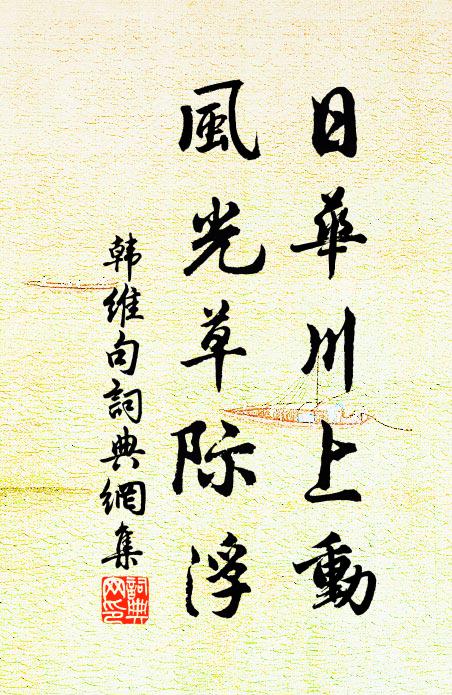 日華川上動
風光草际浮
韩維句詞典網集
詞典
网印